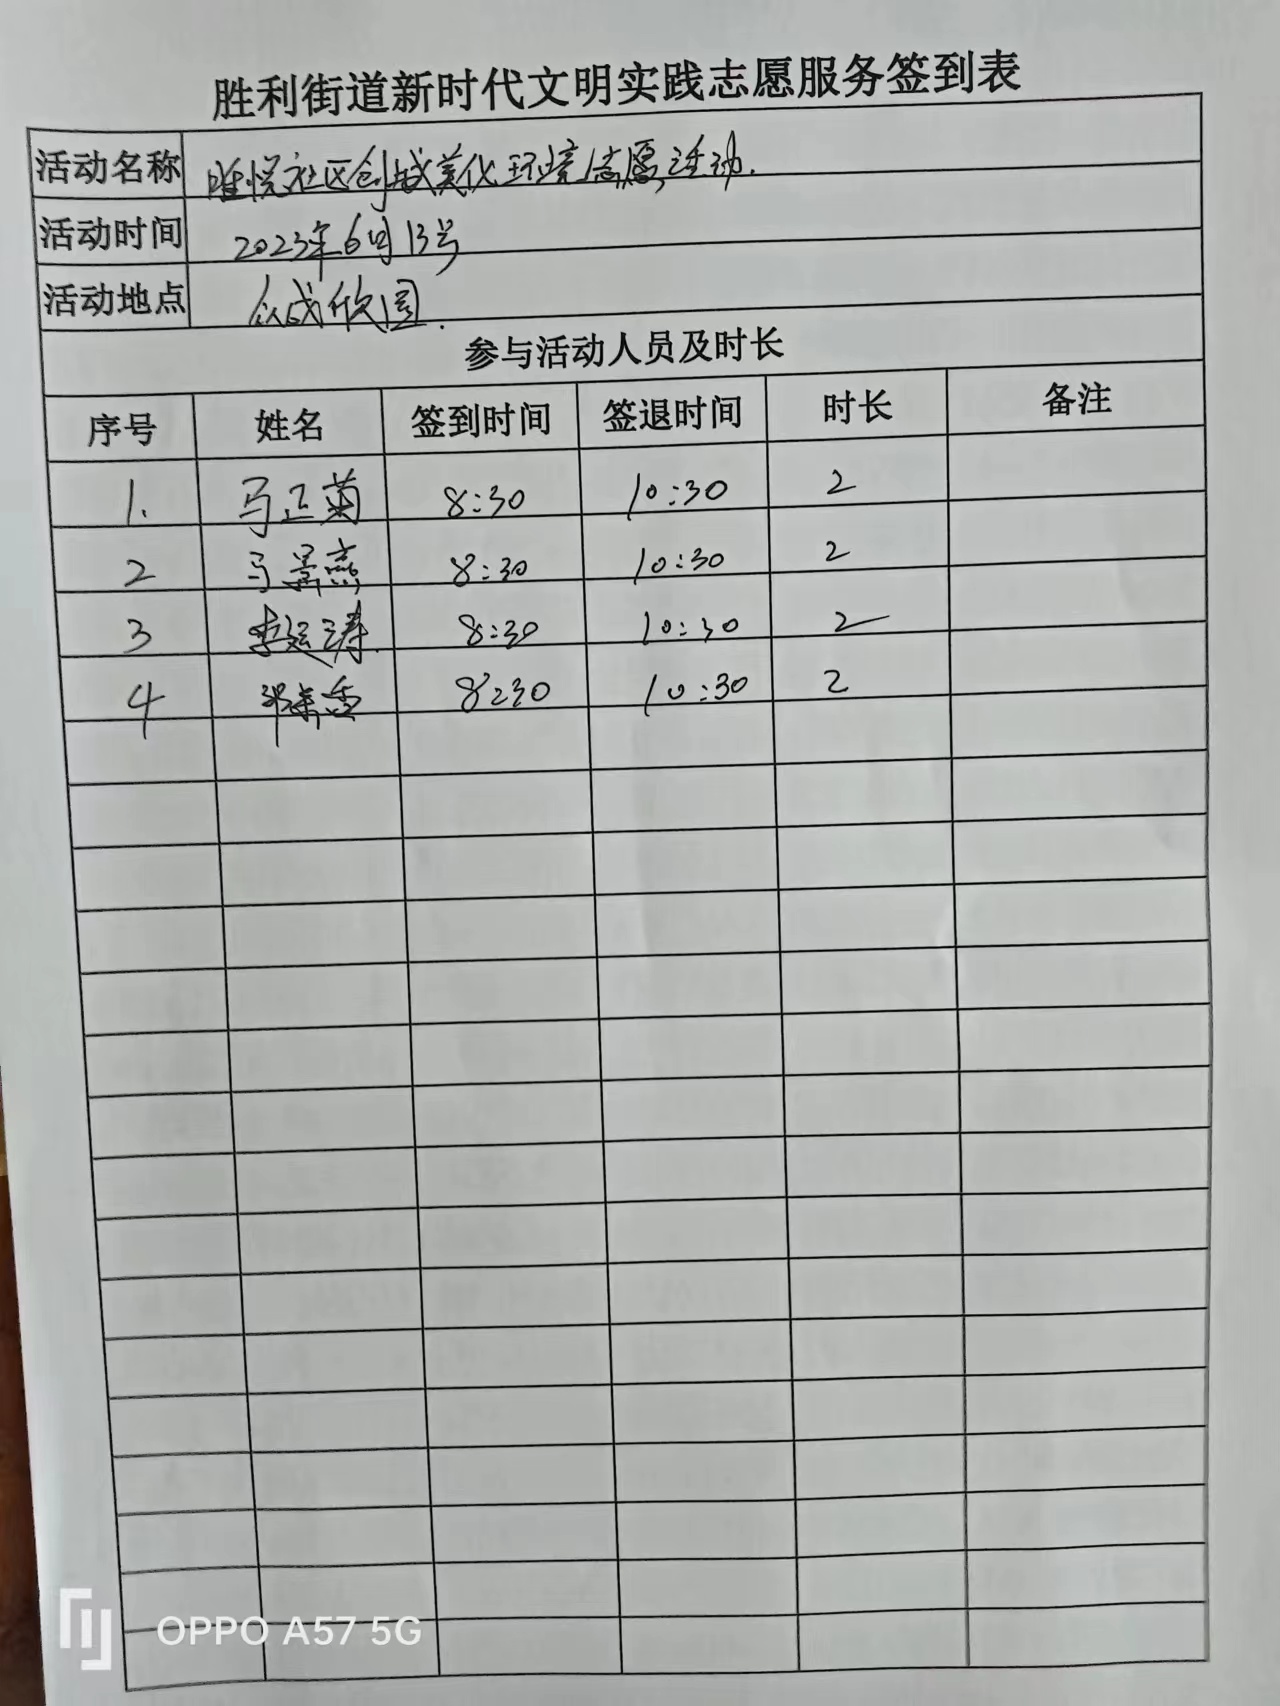 胜利街道新时代文明实践志愿服务签到表
活动名称 唯悦社区创城美化环境志愿活动.
活动时间 2023年6月13号
活动地点 众成欣园.
参与活动人员及时长
序号 姓名 签到时间 签退时间 时长 备注
1. 马正菊 8:30 10:30 2
2 马景燕 8:30 10:30 2
3 李廷涛. 8:30 10:30 2
4 香 8:30 10:30 2
OPPO A57 5G